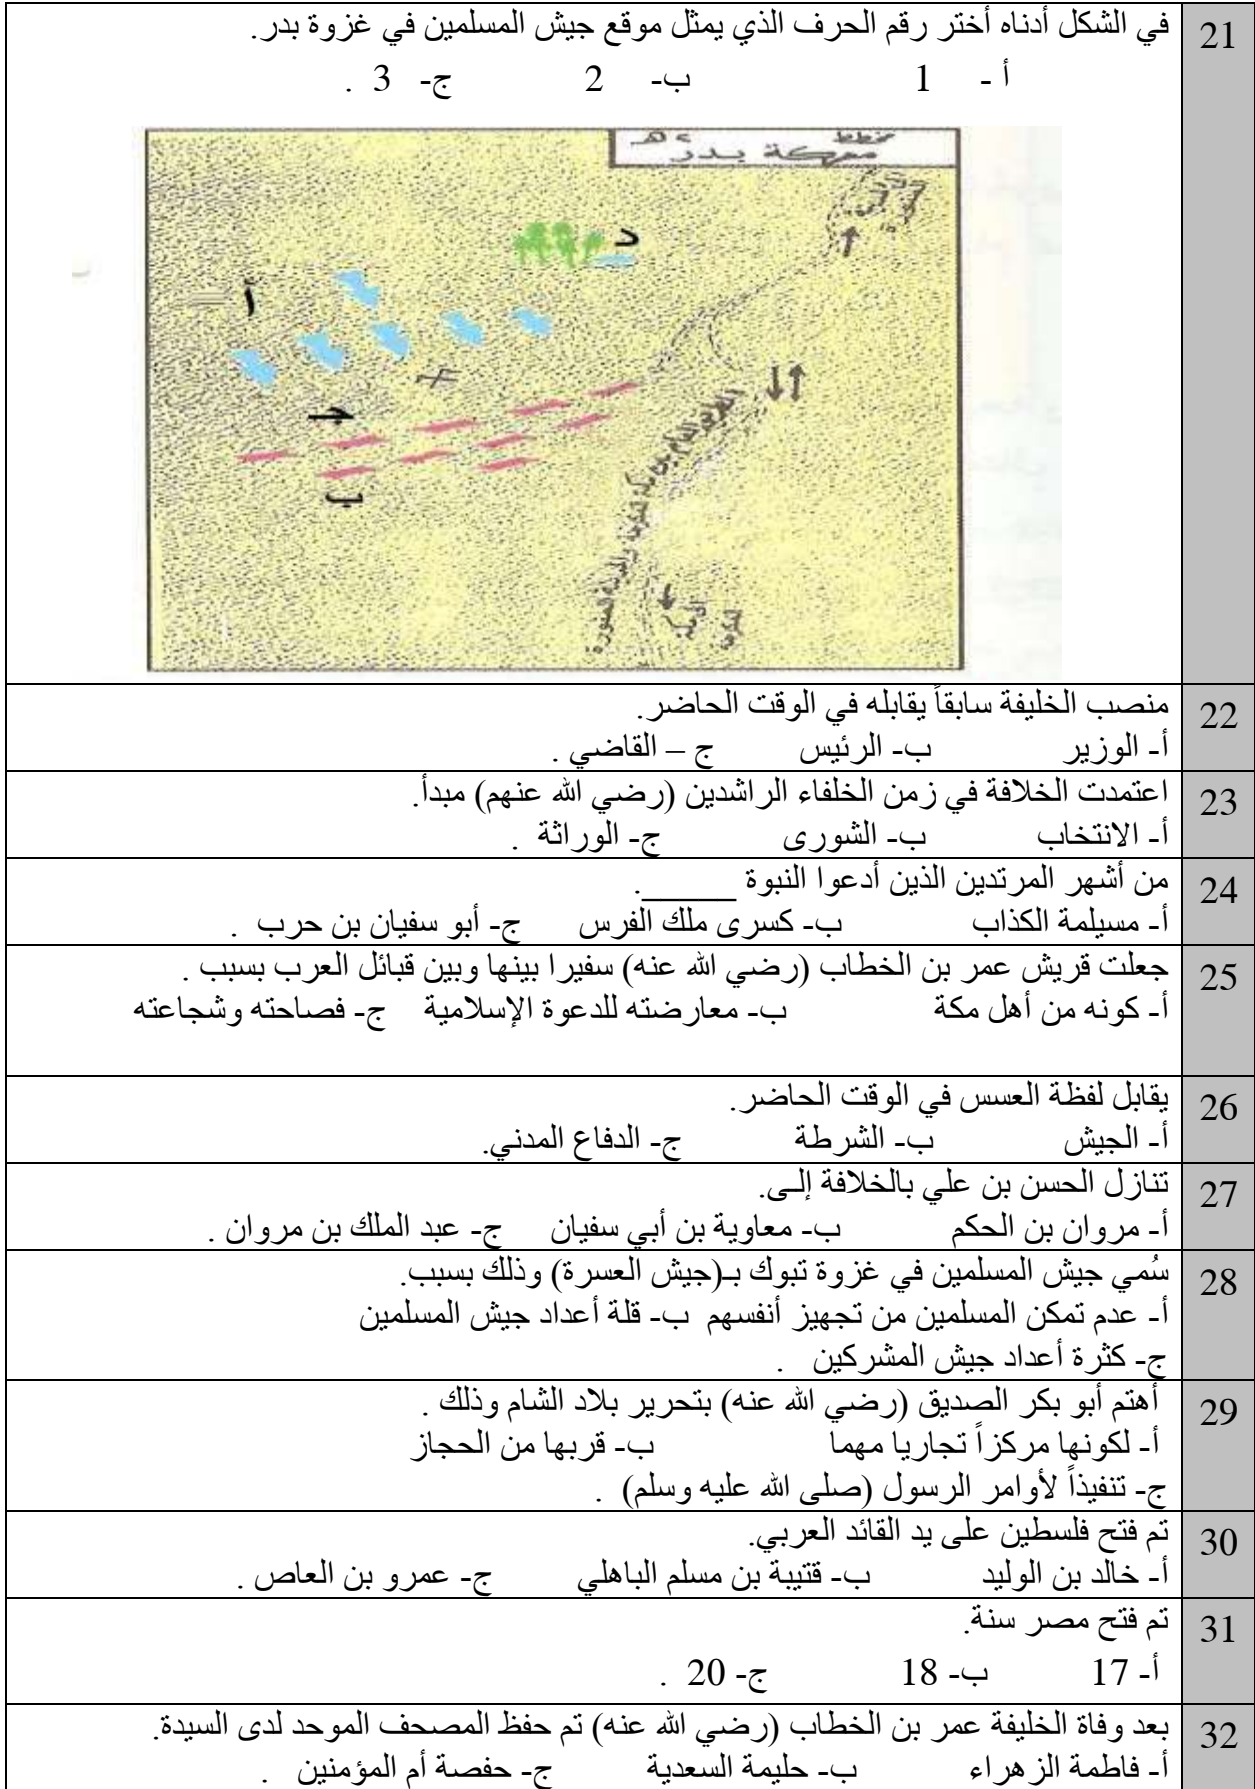 21
في الشكل أدناه أختر رقم الحرف الذي يمثل موقع جيش المسلمين في غزوة بدر.
أ - 1 ب- 2 ج- 3 .
مخطط
معركة بدر ٢ هـ
د
أ
جـ
ب
الطريق العام بين مكة المكرمة والمدينة المنورة
إلى مكة
المكرمة
22
منصب الخليفة سابقاً يقابله في الوقت الحاضر.
أ- الوزير ب- الرئيس ج – القاضي .
23
اعتمدت الخلافة في زمن الخلفاء الراشدين (رضي الله عنهم) مبدأ.
أ- الانتخاب ب- الشورى ج- الوراثة .
24
من أشهر المرتدين الذين أدعوا النبوة ______.
أ- مسيلمة الكذاب ب- كسرى ملك الفرس ج- أبو سفيان بن حرب .
25
جعلت قريش عمر بن الخطاب (رضي الله عنه) سفيرا بينها وبين قبائل العرب بسبب .
أ- كونه من أهل مكة ب- معارضته للدعوة الإسلامية ج- فصاحته وشجاعته
26
يقابل لفظة العسس في الوقت الحاضر.
أ- الجيش ب- الشرطة ج- الدفاع المدني.
27
تنازل الحسن بن علي بالخلافة إلـى.
أ- مروان بن الحكم ب- معاوية بن أبي سفيان ج- عبد الملك بن مروان .
28
سُمي جيش المسلمين في غزوة تبوك بـ(جيش العسرة) وذلك بسبب.
أ- عدم تمكن المسلمين من تجهيز أنفسهم ب- قلة أعداد جيش المسلمين
ج- كثرة أعداد جيش المشركين .
29
أهتم أبو بكر الصديق (رضي الله عنه) بتحرير بلاد الشام وذلك .
أ- لكونها مركزاً تجاريا مهما ب- قربها من الحجاز
ج- تنفيذاً لأوامر الرسول (صلى الله عليه وسلم) .
30
تم فتح فلسطين على يد القائد العربي.
أ- خالد بن الوليد ب- قتيبة بن مسلم الباهلي ج- عمرو بن العاص .
31
تم فتح مصر سنة.
أ- 17 ب- 18 ج- 20 .
32
بعد وفاة الخليفة عمر بن الخطاب (رضي الله عنه) تم حفظ المصحف الموحد لدى السيدة.
أ- فاطمة الزهراء ب- حليمة السعدية ج- حفصة أم المؤمنين .